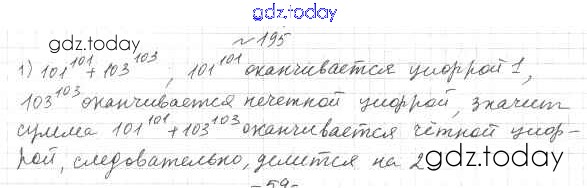 gdz.today
gdz.today
№ 195
1) 101^101 + 103^103 ; 101^101 оканчивается цифрой 1,
103^103 оканчивается нечетной цифрой, значит
сумма 101^101 + 103^103 оканчивается чётной циф-
рой, следовательно, делится на 2
gdz.today
- 59 -